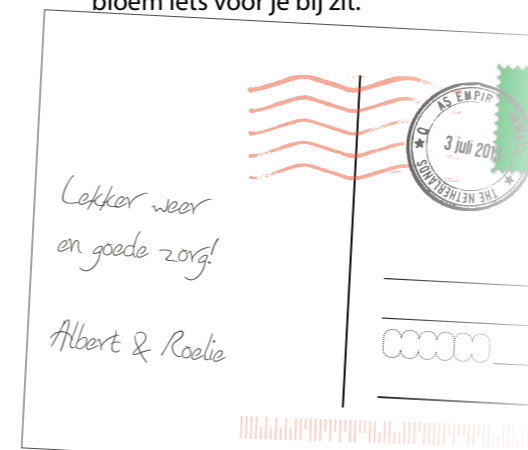 bloem iets voor je bij zit.
AS EMPIR
3 juli 201
THE NETHERLANDS
Lekker weer
en goede zorg!
Albert & Roelie